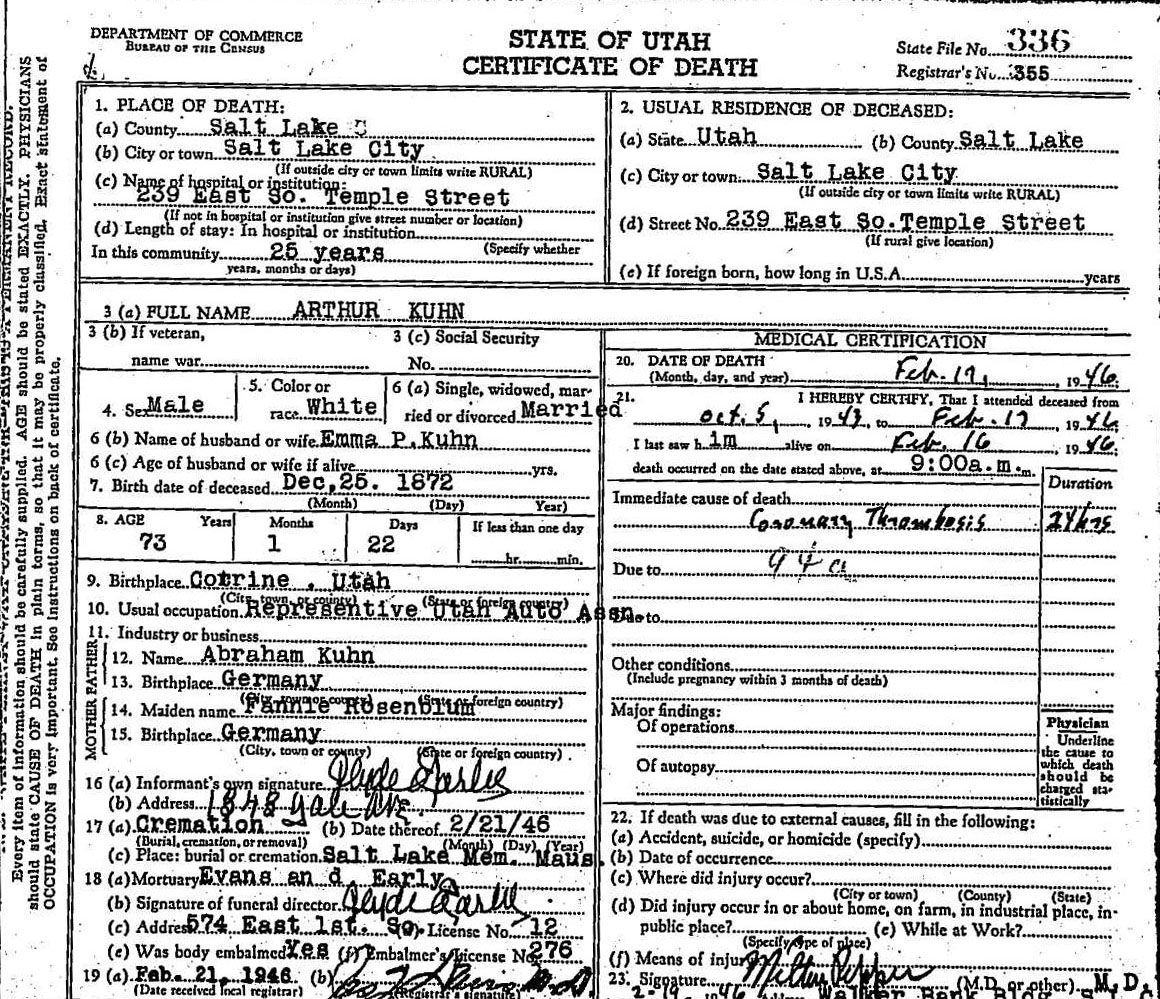 DEPARTMENT OF COMMERCE
BUREAU OF THE CENSUS
STATE OF UTAH
CERTIFICATE OF DEATH
State File No. 336
Registrar's No. 355
Every item of information should be carefully supplied. AGE should be stated EXACTLY. PHYSICIANS
should state CAUSE OF DEATH in plain terms, so that it may be properly classified. Exact statement of
OCCUPATION is very important. See instructions on back of certificate.
1. PLACE OF DEATH:
(a) County Salt Lake
(b) City or town Salt Lake City
(If outside city or town limits write RURAL)
(c) Name of hospital or institution:
239 East So. Temple Street
(If not in hospital or institution give street number or location)
(d) Length of stay: In hospital or institution
In this community 25 years (Specify whether
years, months or days)
2. USUAL RESIDENCE OF DECEASED:
(a) State Utah (b) County Salt Lake
(c) City or town Salt Lake City
(If outside city or town limits write RURAL)
(d) Street No. 239 East So. Temple Street
(If rural give location)
(e) If foreign born, how long in U.S.A. years
3 (a) FULL NAME ARTHUR KUHN
3 (b) If veteran, 3 (c) Social Security
name war No.
4. Sex Male 5. Color or race White 6 (a) Single, widowed, married or divorced Married
6 (b) Name of husband or wife Emma P. Kuhn
6 (c) Age of husband or wife if alive yrs.
7. Birth date of deceased Dec, 25. 1872
(Month) (Day) Year)
8. AGE Years Months Days If less than one day
73 1 22 hr. min.
9. Birthplace Cotrine . Utah
(City, town, or county) (State or foreign country)
10. Usual occupation Representive Utah Auto Assn.
11. Industry or business
FATHER
12. Name Abraham Kuhn
13. Birthplace Germany
(City, town or county) (State or foreign country)
MOTHER
14. Maiden name Fannie Rosenblum
15. Birthplace Germany
(City, town or county) (State or foreign country)
16 (a) Informant's own signature
(b) Address 1848 Yale Ave.
17 (a) Cremation (b) Date thereof 2/21/46
(Burial, cremation, or removal) (Month) (Day) (Year)
(c) Place: burial or cremation Salt Lake Mem. Maus.
18 (a) Mortuary Evans an d Early
(b) Signature of funeral director
(c) Address 574 East 1st. So. License No. 12
(e) Was body embalmed Yes (f) Embalmer's License No. 276
19 (a) Feb. 21, 1946 (b)
(Date received local registrar) (Registrar's signature)
MEDICAL CERTIFICATION
20. DATE OF DEATH
(Month, day, and year) Feb. 17, 1946
21. I HEREBY CERTIFY, That I attended deceased from
Oct. 5, 1943, to Feb. 17, 1946
I last saw h im alive on Feb. 16 1946
death occurred on the date stated above, at 9:00a.m. m.
Duration
Immediate cause of death
Coronary Thrombosis 24 hrs
94a
Due to
Due to
Other conditions
(Include pregnancy within 3 months of death)
Major findings:
Of operations
Of autopsy
Physician
Underline
the cause to
which death
should be
charged sta-
tistically
22. If death was due to external causes, fill in the following:
(a) Accident, suicide, or homicide (specify)
(b) Date of occurrence
(c) Where did injury occur?
(City or town) (County) (State)
(d) Did injury occur in or about home, on farm, in industrial place, in-
public place? (e) While at Work?
(Specify type of place)
(f) Means of injury
23. Signature Milton Pepper (M.D. or other) M.D.
2-19 1946 Address Walker Bank Bldg